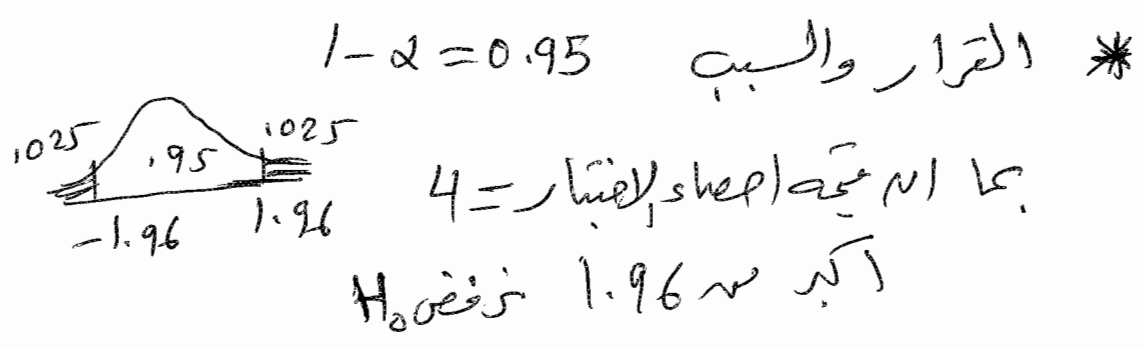 * القرار والسبب 1-α=0.95
.025 .95 .025
-1.96 1.96
بما ان قيمة احصاء الاختبار = 4
اكبر من 1.96 نرفض H₀